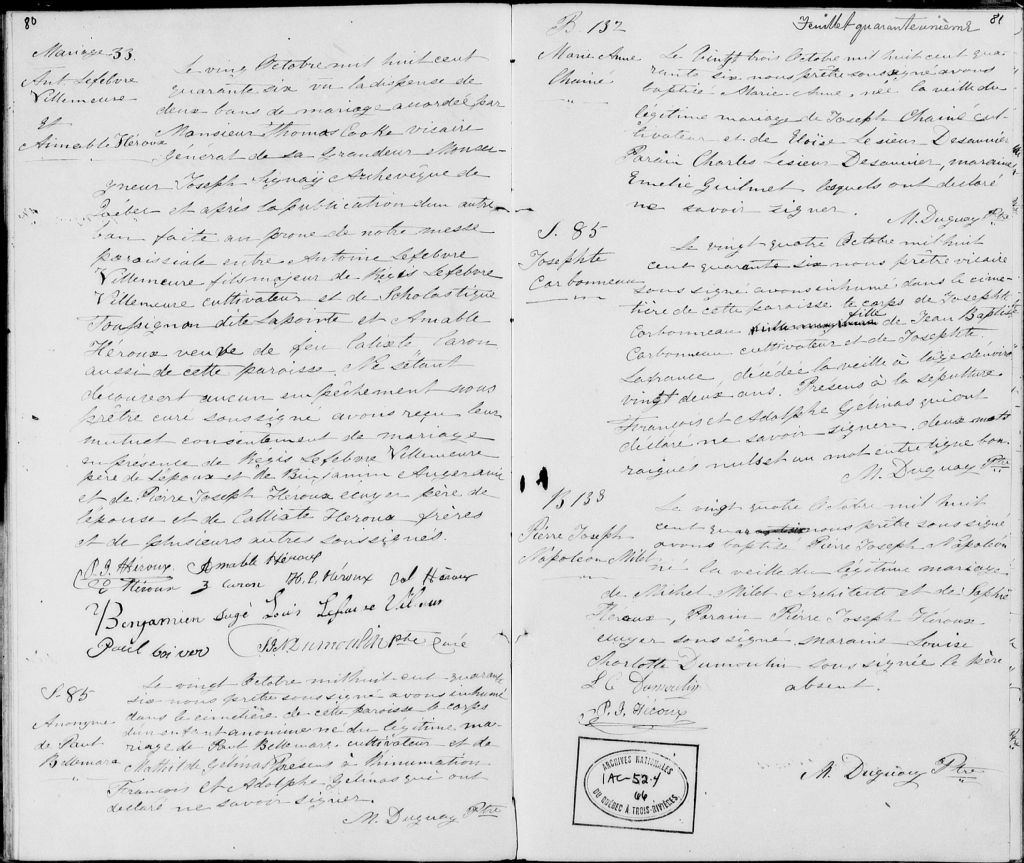 80
Mariage 33
Ant Lefebvre
Villemeure
et
Aimable Héroux
Le ving Octobre mil huit cent
quarante six vu la dispense de
deux bans de mariage accordée par
Monsieur Thomas Cooke vicaire
Général de Sa Grandeur Monsei-
gneur Joseph Signaÿ Archevêque de
Québec et après la publication d'un autre
ban faite au prone de notre messe
paroissiale entre Antoine Lefebvre
Villemeure fils majeur de Régis Lefebvre
Villemeure cultivateur et de Scholastique
Toupignon dite Lapointe et Amable
Héroux veuve de feu Calixte Caron
aussi de cette paroisse. Ne s'étant
découvert aucun empêchement nous
prêtre curé soussigné avons reçu leur
mutuel consentement de mariage
en présence de Régis Lefebvre Villemeure
père de l'époux et de Benjamin
et de Pierre Joseph Héroux ecuyer père de
l'épouse et de Calixte Heroux frères
et de plusieurs autres soussignés.
P. J. Héroux Amable Héroux
Héroux Z Caron H. P. Héroux Cal Héroux
Benjamien Augé Louis Lefebvre
Paul boiver S N Dumoulin Ptre Curé
S. 85
Anonyme
de Paul
Bellemare
Le vingt Octobre mil huit cent quarante
six nous prêtre soussigné avons inhumé
dans le cimetière de cette paroisse le corps
d'un enfant anonime né du légitime ma-
riage de Paul Bellemare, cultivateur et de
Mathilde Gelinas Presens à l'inhumation
Francois et Adolphe Gelinas qui ont
déclaré ne savoir signer.
M. Duguay Ptre
81
Feuillet quarante unième
B. 132
Marie Anne
Chainé
Le Vingt trois Octobre mil huit cent qua-
rante six nous prêtre soussigné avons
baptisé Marie Anne, née la veille du
légitime mariage de Joseph Chainé cul-
tivateur et de Eloïse Lesieur Desaunier
Parain Charles Lesieur Desaunier, maraine
Emelie Guilmet lesquels ont declaré
ne savoir signer.
M. Duguay Ptre
S. 85
Josephte
Carbonneau
Le vingt quatre Octobre mil huit
cent quarante six nous prêtre vicaire
soussigné avons inhumé dans le cime-
tière de cette paroisse le corps de Josephte
Carbonneau fille de Jean Baptiste
Carbonneau cultivateur et de Josephte
Lafrance, décédée la veille à l'âge d'environ
vingt deux ans. Présens à la sépulture
François et Adolphe Gelinas qui ont
déclaré ne savoir signer, deux mots
raiguès nuls et un mot entre ligne bon
M. Duguay Ptre
B 133
Pierre Joseph
Napoléon Milet
Le vingt quatre Octobre mil huit
cent quarante six nous prêtre soussigné
avons baptisé Pierre Joseph Napoléon
né la veille du légitime mariage
de Michel Milet Architecte et de Sophie
Héroux, Parain Pierre Joseph Héroux
ecuyer soussigné maraine Louise
Charlotte Dumoulin soussignée le père
absent.
L C Dumoulin
P. J. Héroux
M. Duguay Ptre
ARCHIVES NATIONALES
1AC-52-4
66
DU QUÉBEC À TROIS-RIVIÈRES